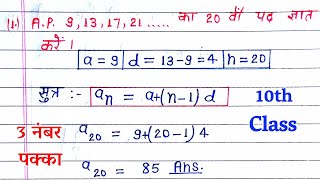 (1.) A.P. 9, 13, 17, 21 ..... का 20 वाँ पद ज्ञात
करें।
a = 9 d = 13-9 = 4 n = 20
सूत्र :- an = a+(n-1) d
10th
Class
3 नंबर
पक्का
a20 = 9+(20-1) 4
a20 = 85 Ans.